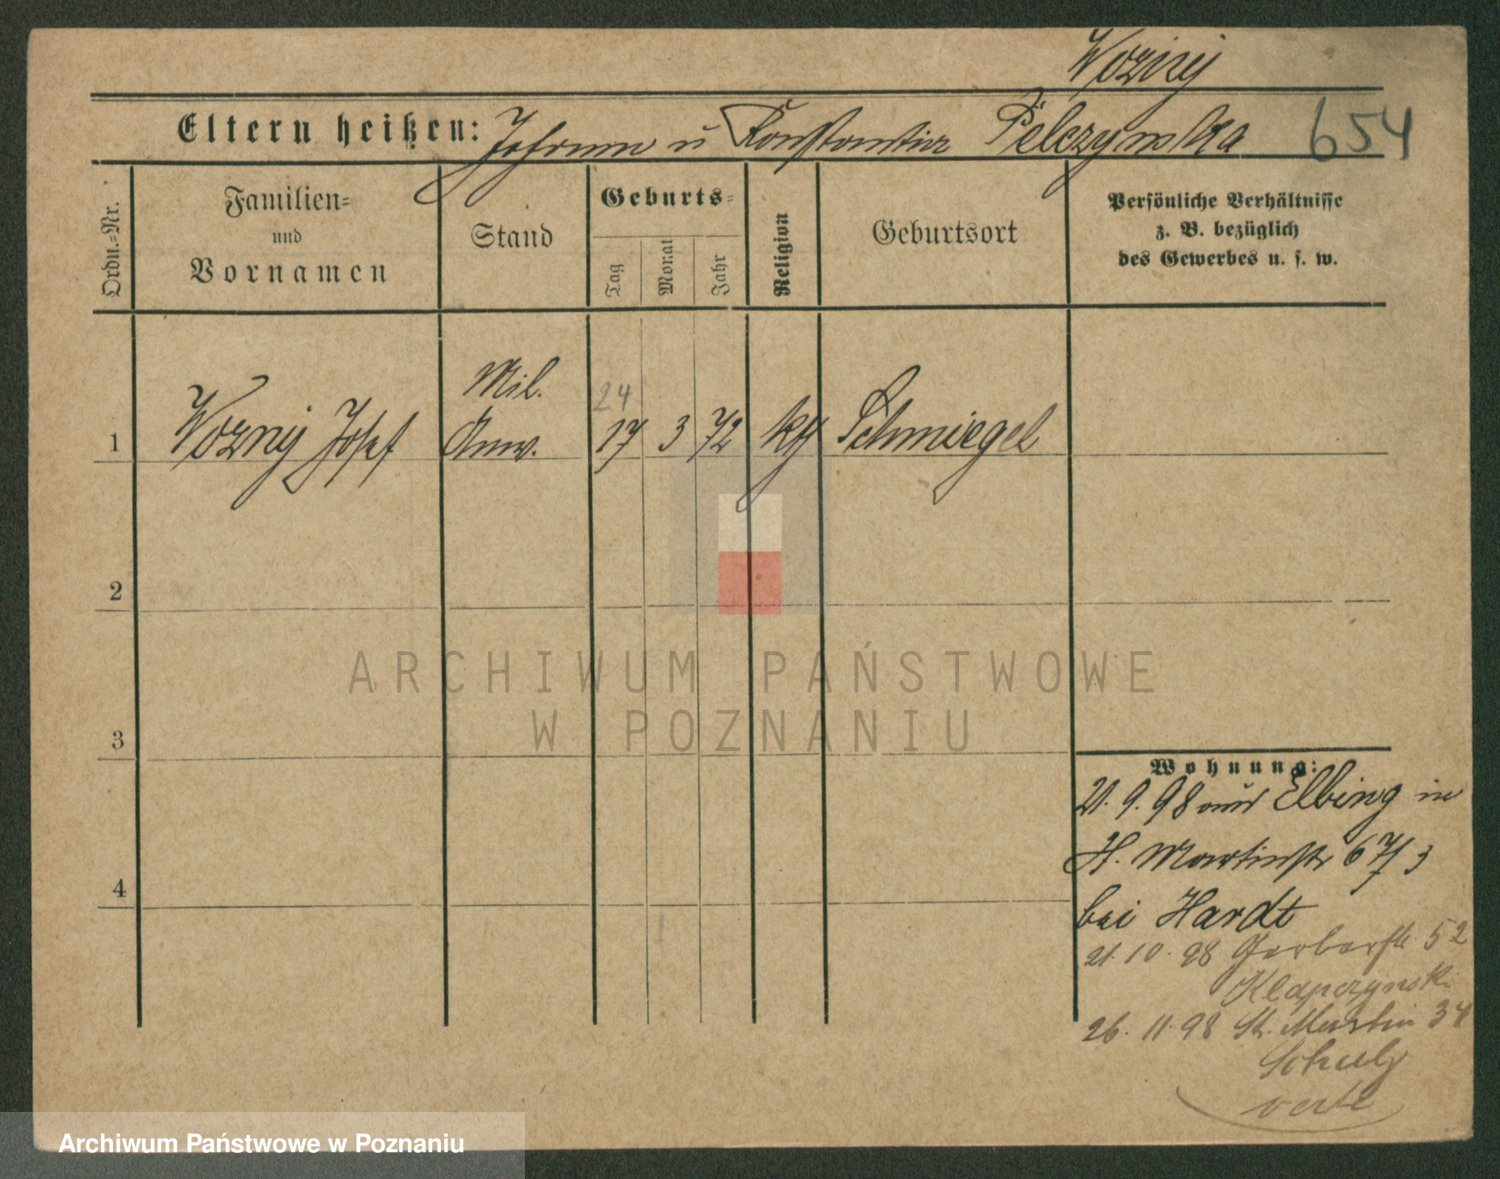 Wozny
Eltern heißen: Johann u Konstantia Pelczynska 654
Ordn.-Nr.
Familien-
und
Vornamen
Stand
Geburts-
Tag
Monat
Jahr
Religion
Geburtsort
Persönliche Verhältnisse
z. B. bezüglich
des Gewerbes u. s. w.
Mil.
24
1 Wozny Josef Anw. 17 3 72 kth Schmiegel
2
3
4
Wohnung:
21. 9. 98 aus Elbing in
St. Martinstr 67/3
bei Hardt
21. 10. 98 Gerberstr. 52
Klapczynski
26. 11. 98 St. Martin 34
Schulz
verte
ARCHIWUM PAŃSTWOWE
W POZNANIU
Archiwum Państwowe w Poznaniu